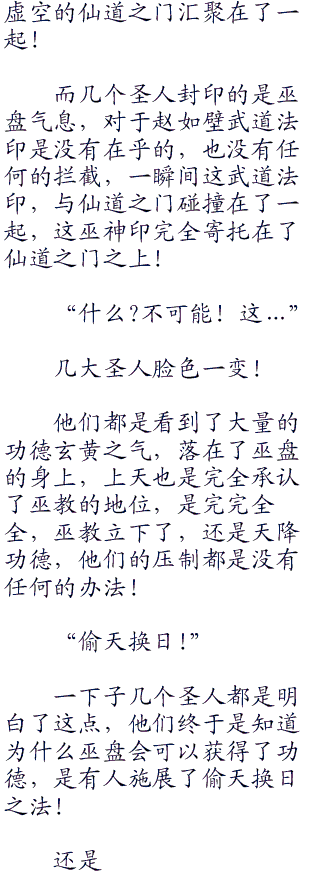 虚空的仙道之门汇聚在了一
起！
而几个圣人封印的是巫
盘气息，对于赵如壁武道法
印是没有在乎的，也没有任
何的拦截，一瞬间这武道法
印，与仙道之门碰撞在了一
起，这巫神印完全寄托在了
仙道之门之上！
“什么？不可能！这…”
几大圣人脸色一变！
他们都是看到了大量的
功德玄黄之气，落在了巫盘
的身上，上天也是完全承认
了巫教的地位，是完完全
全，巫教立下了，还是天降
功德，他们的压制都是没有
任何的办法！
“偷天换日！”
一下子几个圣人都是明
白了这点，他们终于是知道
为什么巫盘会可以获得了功
德，是有人施展了偷天换日
之法！
还是